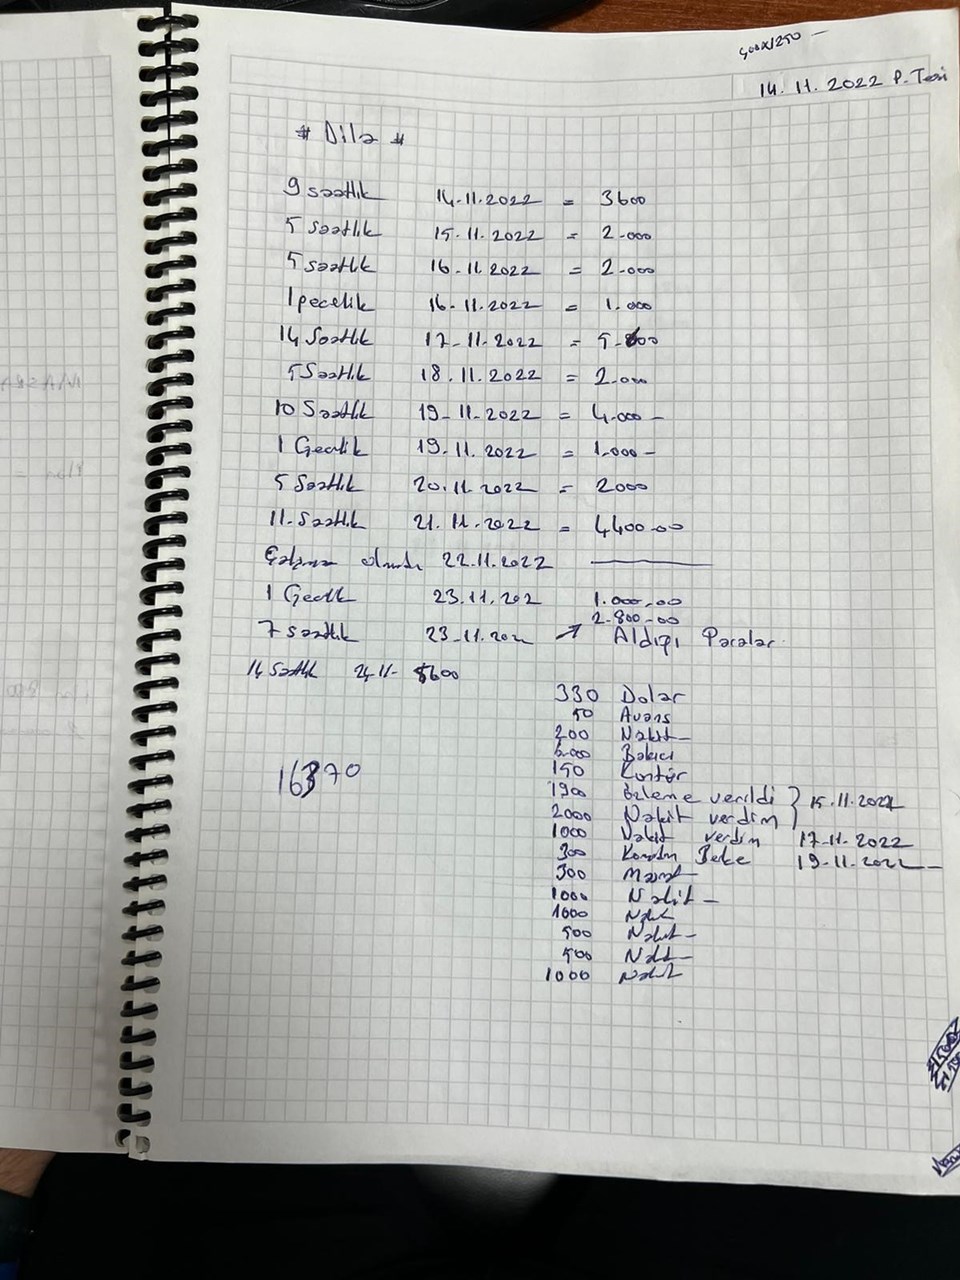 14.11.2022 P.Tesi
# Dila #
9 saatlik 14.11.2022 = 3600
5 saatlik 15.11.2022 = 2.000
5 saatlik 16.11.2022 = 2.000
1 pecelik 16.11.2022 = 1.000
14 Saatlik 17.11.2022 =
5 Saatlik 18.11.2022 = 2.000
10 Saatlik 19.11.2022 = 4.000 -
1 Gecelik 19.11.2022 = 1.000 -
5 Saatlik 20.11.2022 = 2000
11. Saatlik 21.11.2022 = 4400.00
Çalışma olmadı 22.11.2022
1 Gecelik 23.11.202 1.000.00
2.800.00
7 saatlik 23.11.2022 Aldığı Paralar
14 Saatlik 24.11- 5600
330 Dolar
50 Avans
200 Nakit
6.000 Bakıcı
150 Kontör
16370
1900 ödeme verildi 15.11.2022
2000 Nakit verdim
1000 Nakit verdim 17.11.2022
300 19.11.2022
300
1000 Nakit
1000 Nakit
500 Nakit
500 Nakit
1000 Nakit